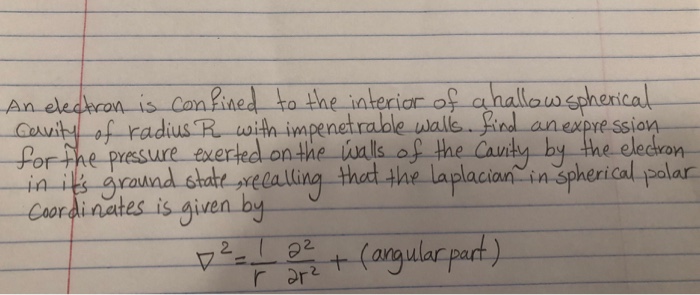 An electron is confined to the interior of a hallow spherical
Cavity of radius R with impenetrable walls. find an expression
for the pressure exerted on the walls of the Cavity by the electron
in it's ground state, recalling that the laplacian in spherical polar
Coordinates is given by
∇² = 1/r ∂²/∂r² + (angular part)